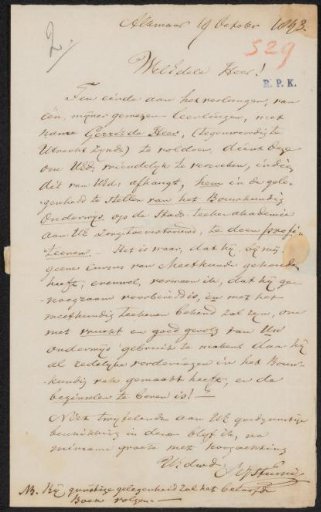 2.
Alkmaar 19 October 1893.
529
R. P. K.
WelEdele Heer!
Ten einde aan het verlangen, van
één mijner leerlingen, met
name Gerrit de Boer, (tegenwoordig te
Utrecht zijnde) te voldoen, dient deze
om UEd. vriendelijk te verzoeken, indien
dit van UEd. afhangt, hem in de gele-
genheid te stellen van het Bouwkundig
Onderwijs op de Stads
aan UE toevertrouwd, te doen profi-
teeren. — Het is waar, dat hij bij mij
geenen Cursus van Meetkunde gehoord
heeft; evenwel, vermeen ik, dat hij ge-
noegzaam voorbereid is, en met het
meetkundig teekenen bekend zal zijn, om
met vrucht en goed gevolg van Uw
onderwijs gebruik te maken daar hij
al redelijke vorderingen in het Bouw-
kundig vak gemaakt heeft, en de
beginselen te boven is! —
Niet twijfelende aan UE goedgunstige
beschikking in deze blijf ik, na
groete met hoogachting
UEd. dw. d.
NB. Bij gunstige gelegenheid zal het beloofde
Boek volgen.